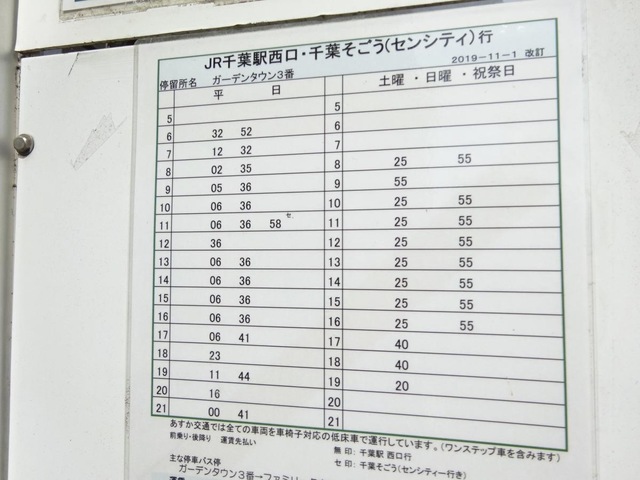 JR千葉駅西口・千葉そごう(センシティ)行
2019-11-1 改訂
停留所名 ガーデンタウン3番
平 日 土曜・日曜・祝祭日
5 5
6 32 52 6
7 12 32 7
8 02 35 8 25 55
9 05 36 9 55
10 06 36 10 25 55
11 06 36 58セ 11 25 55
12 36 12 25 55
13 06 36 13 25 55
14 06 36 14 25 55
15 06 36 15 25 55
16 06 36 16 25 55
17 06 41 17 40
18 23 18 40
19 11 44 19 20
20 16 20
21 00 41 21
あすか交通では全ての車両を車椅子対応の低床車で運行しています。(ワンステップ車を含みます)
前乗り・後降り 運賃先払い 無 印:千葉駅 西口行
セ 印:千葉そごう(センシティー行き)
主な停車バス停
ガーデンタウン3番→ファミリー